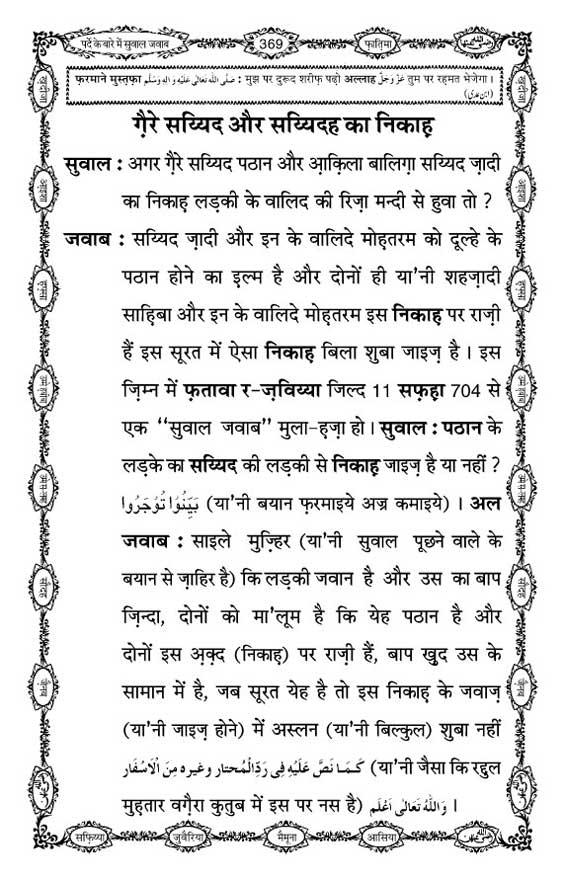 पर्दे के बारे में सुवाल जवाब
369
फ़ातिमा
फ़रमाने मुस्तफ़ा صَلَّى اللهُ تَعَالٰى عَلَيْهِ وَاٰلِهٖ وَسَلَّم : मुझ पर दुरूद शरीफ़ पढ़ो अल्लाह عَزَّ وَجَلَّ तुम पर रहमत भेजेगा ।
(ابن عدی)
ग़ैरे सय्यिद और सय्यिदह का निकाह़
सुवाल : अगर ग़ैरे सय्यिद पठान और आ़क़िला बालिग़ा सय्यिद ज़ादी
का निकाह़ लड़की के वालिद की रिज़ा मन्दी से हुवा तो ?
जवाब : सय्यिद ज़ादी और इन के वालिदे मोह़तरम को दूल्हे के
पठान होने का इ़ल्म है और दोनों ही या'नी शहज़ादी
साह़िबा और इन के वालिदे मोह़तरम इस निकाह़ पर राज़ी
हैं इस सूरत में ऐसा निकाह़ बिला शुबा जाइज़ है । इस
ज़िम्न में फ़तावा र-ज़विय्या जिल्द 11 सफ़ह़ा 704 से
एक “सुवाल जवाब” मुला-ह़ज़ा हो । सुवाल : पठान के
लड़के का सय्यिद की लड़की से निकाह़ जाइज़ है या नहीं ?
بَيِّنُوْا تُوْجَرُوا (या'नी बयान फ़रमाइये अज्र कमाइये) । अल
जवाब : साइले मुज़्हिर (या'नी सुवाल पूछने वाले के
बयान से ज़ाहिर है) कि लड़की जवान है और उस का बाप
ज़िन्दा, दोनों को मा'लूम है कि येह पठान है और
दोनों इस अ़क़्द (निकाह़) पर राज़ी हैं, बाप खुद उस के
सामान में है, जब सूरत येह है तो इस निकाह़ के जवाज़
(या'नी जाइज़ होने) में अस्लन (या'नी बिल्कुल) शुबा नहीं
كَمَا نَصَّ عَلَيْهِ فِى رَدِّالْمُحتار وغيره مِنَ الْاَسْفَار (या'नी जैसा कि रद्दुल
मुह़तार वग़ैरा कुतुब में इस पर नस है) وَاللهُ تَعَالٰى اَعْلَم ।
सफ़िय्या
जुवैरिया
मैमूना
आसिया